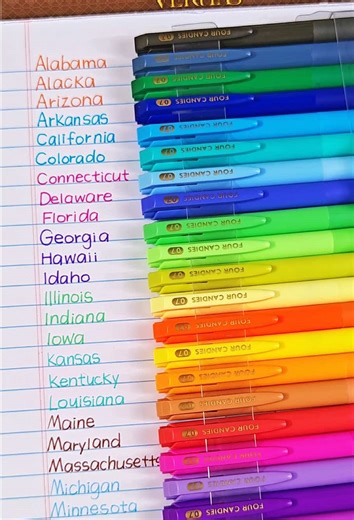 VERSES
Alabama
Alacka
Arizona
Arkansas
California
Colorado
Connecticut
Delaware
Florida
Georgia
Hawaii
Idaho
Illinois
Indiana
Iowa
Kansas
Kentucky
Louisiana
Maine
Maryland
Massachusetts
Michigan
Minnesota
FOUR CANDIES 0.7
FOUR CANDIES 0.7
FOUR CANDIES 0.7
FOUR CANDIES 0.7
FOUR CANDIES 0.7
FOUR CANDIES 0.7
FOUR CANDIES 0.7
FOUR CANDIES 0.7
FOUR CANDIES 0.7
FOUR CANDIES 0.7
FOUR CANDIES 0.7
FOUR CANDIES 0.7
FOUR CANDIES 0.7
FOUR CANDIES 0.7
FOUR CANDIES 0.7
FOUR CANDIES 0.7
FOUR CANDIES 0.7
FOUR CANDIES 0.7
FOUR CANDIES 0.7
FOUR CANDIES 0.7